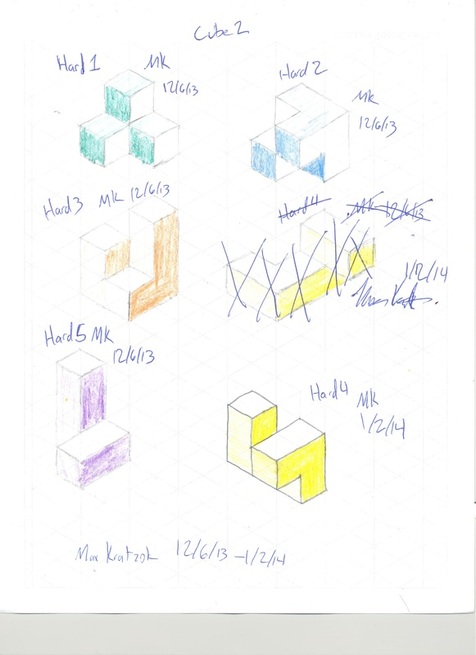 Cube 2
Hard 1 MK
12/6/13
Hard 2
MK
12/6/13
Hard 3 MK 12/6/13
Hard 4 MK 12/6/13
1/2/14
Hard 5 MK
12/6/13
Hard 4 MK
1/2/14
Max 12/6/13 - 1/2/14